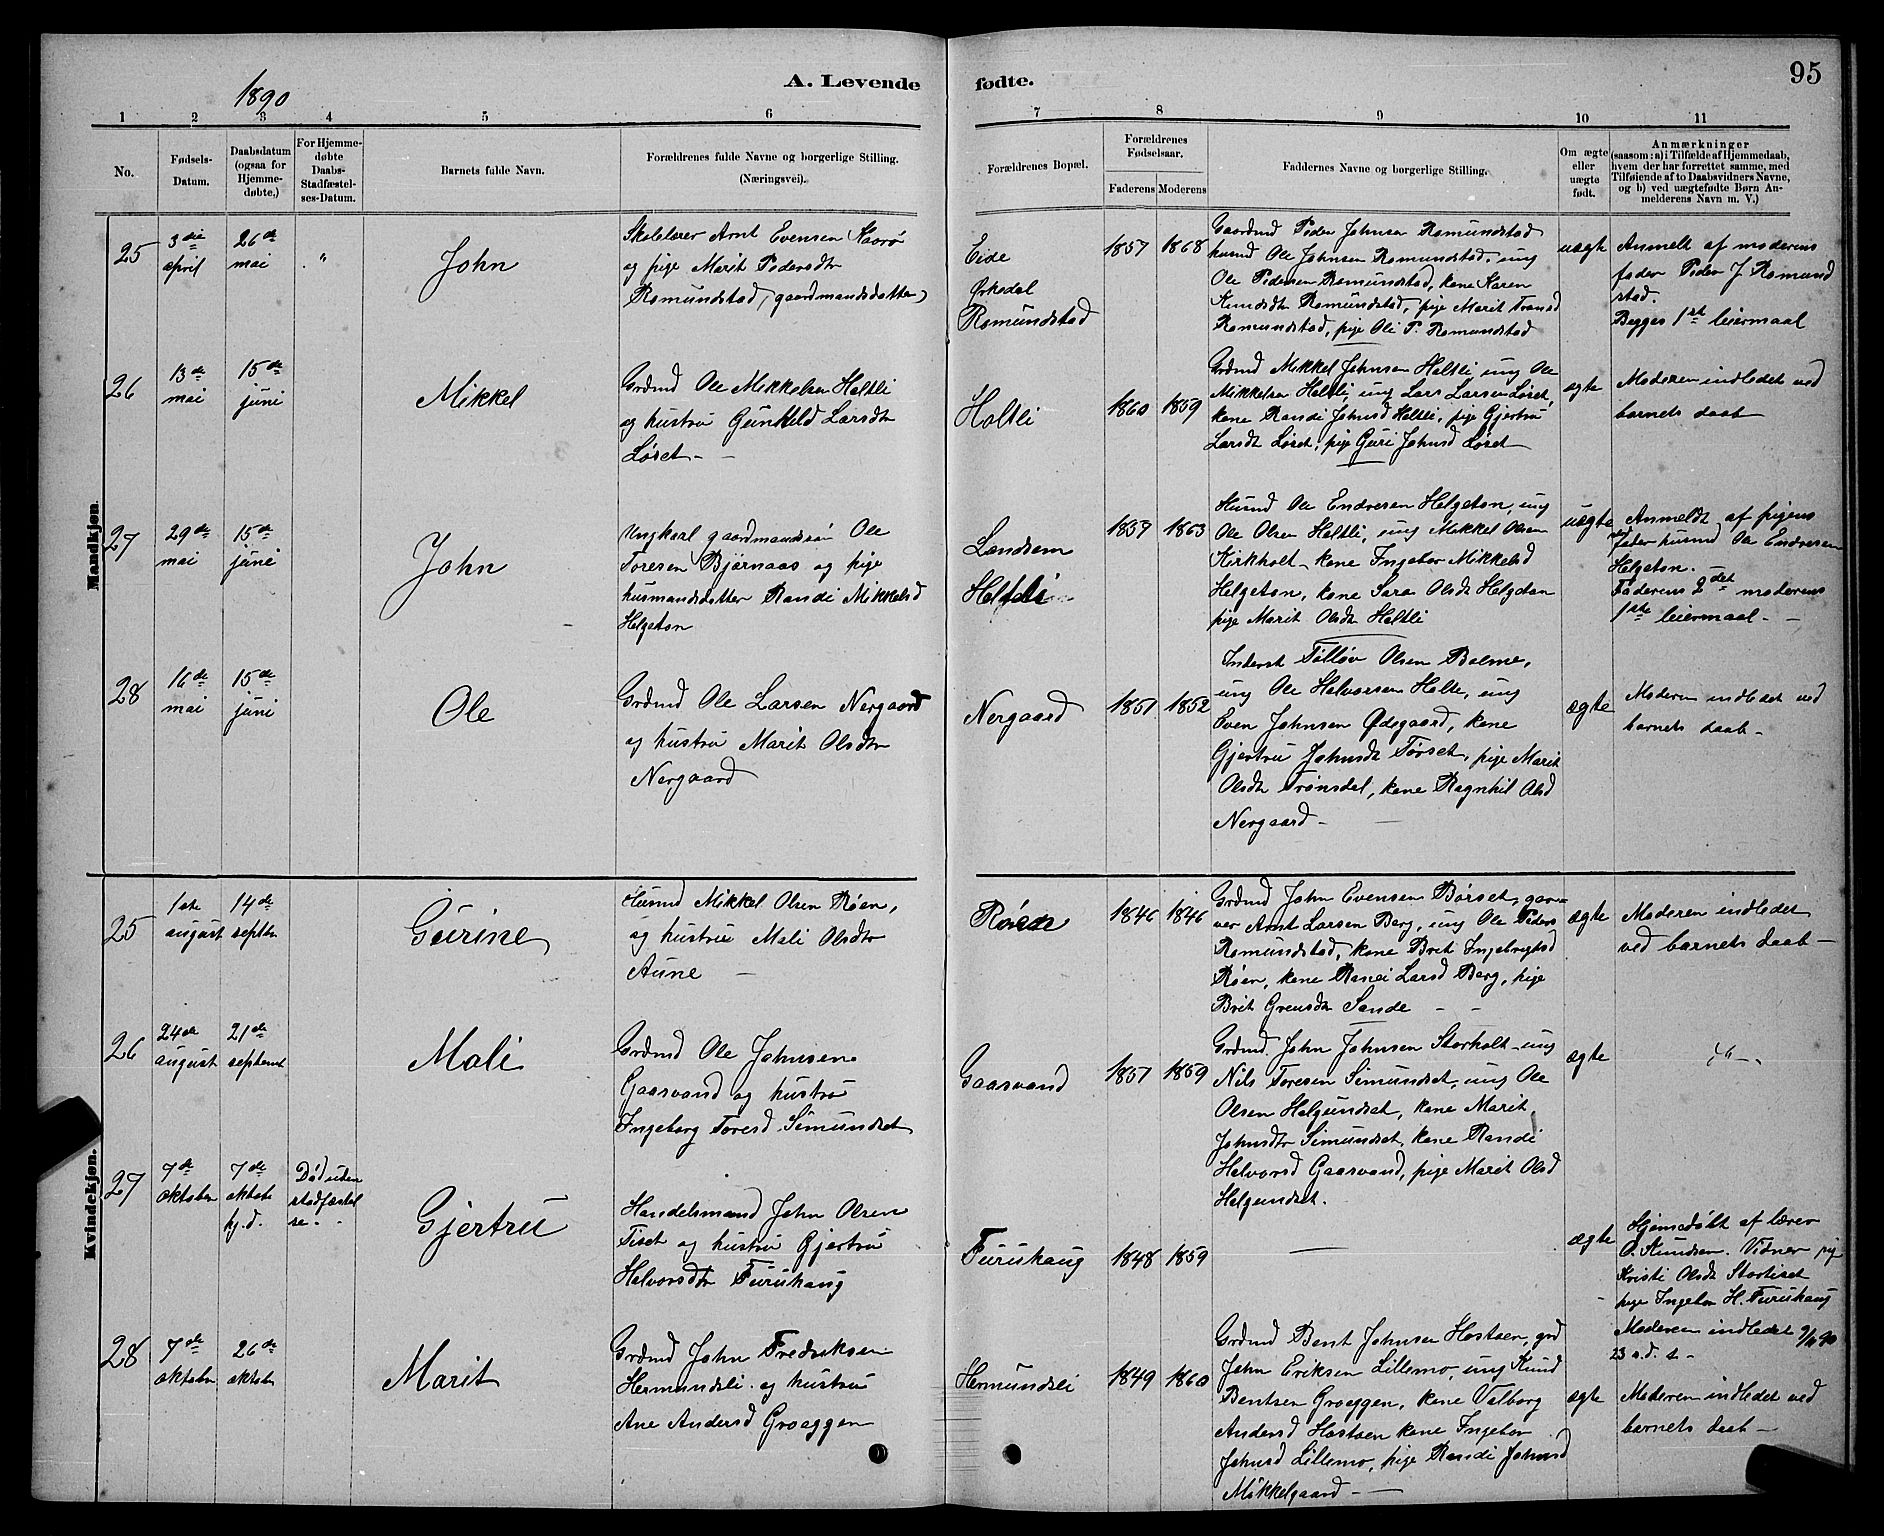 1890
A. Levende
fødte.
95
1
2
3
4
5
6
7
8
9
10
11
No.
Fødsels-
Datum.
Daabsdatum
(ogsaa for
Hjemme-
døbte,)
For Hjemme-
døbte
Daabs-
Stadfæstel-
ses-Datum.
Barnets fulde Navn.
Forældrenes fulde Navne og borgerlige Stilling.
(Næringsvei).
Forældrenes Bopæl.
Forældrenes
Fødselsaar.
Faderens
Moderens
Faddernes Navne og borgerlige Stilling.
Om ægte
eller
uægte
født.
Anmærkninger
(saasom: a) i Tilfælde af Hjemmedaab,
hvem der har forrettet samme, med
Tilføiende af to Daabsvidners Navne,
og b) ved uægtefødte Børn An-
melderens Navn m. V.)
Mandkjøn.
25
3die
april
26de
mai
"
John
Skolelærer Arnt Evensen Kaarø
og pige Marit Pedersdtr
Romundstad (gaardmandsdatter)
Eide
Ørkedal
Romundstad
1857
1868
Gaardmd Peder Johnsen Romundstad
husmd Ole Johnsen Romundstad, ung
Ole Pedersen Romundstad, kone Karen
Knudsdtr Romundstad, pige Marit Tronsd
Romundstad, pige Oli P. Romundstad
uægte
Anmelt af moderens
fader Peder J. Romund
stad.
Begges 1ste leiermaal
26
13de
mai
15de
juni
Mikkel
Grdmd Ole Mikkelsen Holtli
og hustru Gunhild Larsdtr
Løset -
Holtli
1860
1859
Grdmd Mikkel Johnsen Holtli, ung Ole
Mikkelsen Holtli, ung Lars Larsen Løset,
kone Randi Johnsd Holtli, pige Gjertru
Larsdt Løset, pige Guri Johnsd Løset
ægte
Moderen indledet ved
barnets daab
27
29de
mai
15de
juni
John
Ungkarl gaardmandssøn Ole
Toresen Bjørnaas og pige
husmandsdatter Randi Mikkelsd
Helgeton
Landsem
Holtli
1837
1863
Husmd Ole Endresen Helgeton, ung
Ole Olsen Holtli, ung Mikkel Olsen
Kirkholt, kone Ingebor Mikkelsd
Helgeton, kone Sara Olsdt Helgeton
pige Marit Olsdt Holtli
uægte
Anmeldt af pigens
fader husmd Ole Endresen
Helgeton. -
Faderens 2det moderens
1ste leiermaal -
28
16de
mai
15de
juni
Ole
Grdmd Ole Larsen Nergaard
og hustru Marit Olsdtr
Nergaard
Nergaard
1851
1852
Inderst Tølløv Olsen Bolme,
ung Ole Halvorsen Holte, ung
Even Johnsen Ødegaard, kone
Gjertru Johnsdt Tørset, pige Marit
Olsdt Trønsdal, kone Ragnhil Olsd
Nergaard -
ægte
Moderen indledet ved
barnets daab -
Kvindekjøn.
25
1ste
august
14de
septbr
Gurine
Husmd Mikkel Olsen Røen,
og hustru Mali Olsdtr
Aune -
Røen
1846
1846
Grdmd John Evensen Børset, garver
Arnt Larsen Berg, ung Ole Peders
Romundstad, kone Brit Ingebrigtsd
Røen, kone Ranei Larsd Berg, pige
Brit Grensdtr Sande -
ægte
Moderen indledet
ved barnets daab -
26
24de
august
21de
septembr
Mali
Grdmd Ole Johnsen
Gaasvand og hustru
Ingeborg Toresd Simundset
Gaasvand
1851
1859
Grdmd. John Johnsen Storholt - ung
Nils Toresen Simundset, ung Ole
Olsen Helgundset, kone Marit
Johnsdtr Simundset, kone Randi
Halvorsd Gaasvand, pige Marit Olsd
Helgundset.
ægte
27
7de
oktober
7de
oktob
hj.d.
Død uden
stadfæstel
se -
Gjertru
Handelsmand John Olsen
Tiset og hustru Gjertru
Halvorsdtr Furuhaug
Furuhaug
1848
1859
—
ægte
Hjemedøbt af lærer
O. Knudsen. Vidner pig
Kristi Olsdt Stortiset
pige Ingebor H. Furuhaug
Moderen indledet 9/11 90
23 s. d. t. -
28
7de
oktober
26de
oktob
Marit
Grdmd John Fredriksen
Hermundsli og hustru
Ane Andersd Groeggen
Hermundsli
1849
1860
Grdmd Bent Johnsen Hostoen, grd
John Eriksen Lillemo, ung Knud
Bentsen Groeggen, kone Valborg
Andersd Hostoen kone Ingebor
Johnsd Lillemo, pige Randi Johnsd
Mikkelgaard -
ægte
Moderen indledet ved
barnets daab -